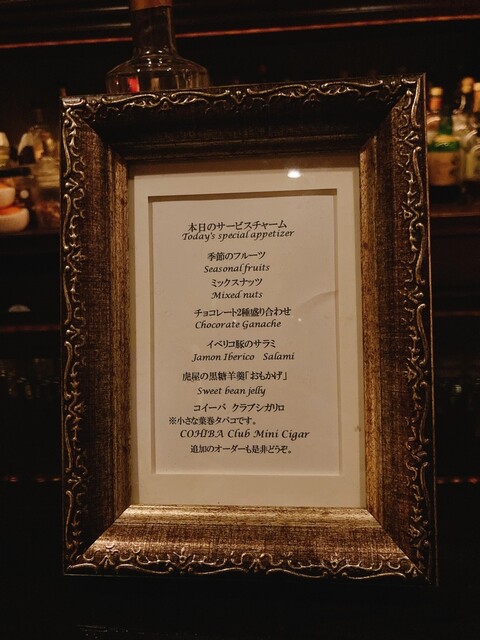 本日のサービスチャーム
Today's special appetizer
季節のフルーツ
Seasonal fruits
ミックスナッツ
Mixed nuts
チョコレート2種盛り合わせ
Chocorate Ganache
イベリコ豚のサラミ
Jamon Iberico Salami
虎屋の黒糖羊羹「おもかげ」
Sweet bean jelly
コイーバ クラブシガリロ
※小さな葉巻タバコです。
COHIBA Club Mini Cigar
追加のオーダーも是非どうぞ。